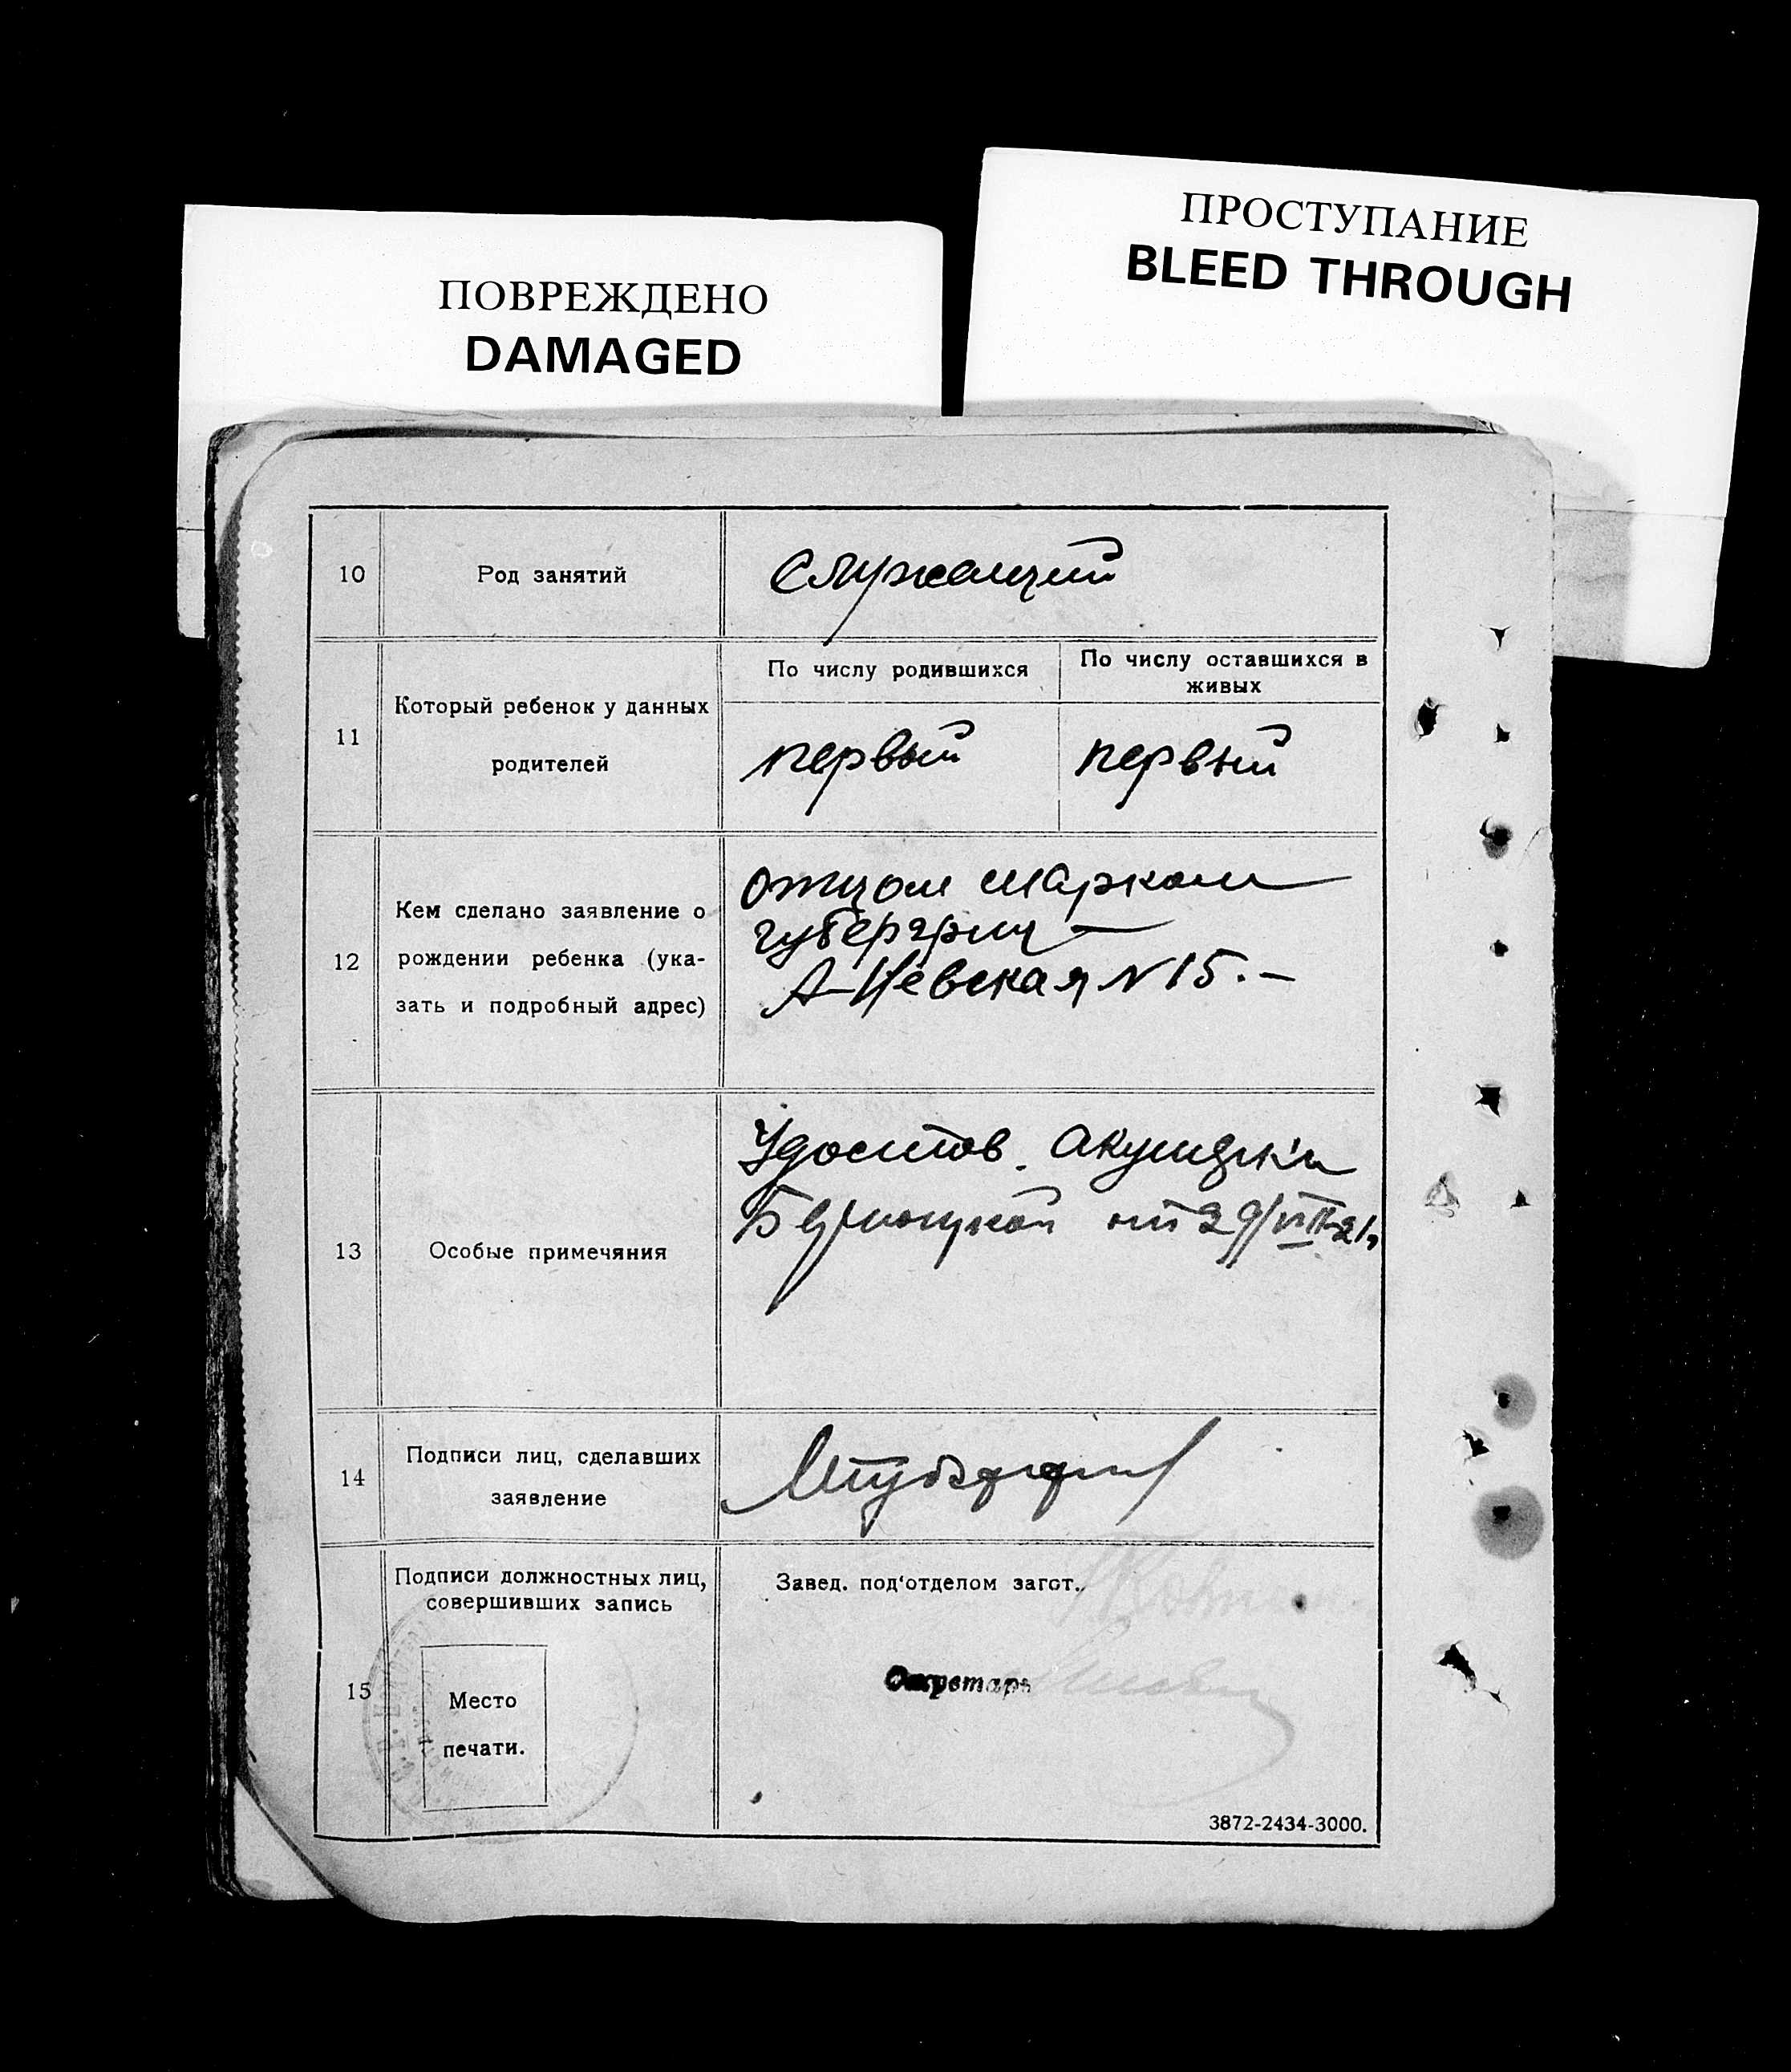 ПОВРЕЖДЕНО
DAMAGED
ПРОСТУПАНИЕ
BLEED THROUGH
10
Род занятий
Служащий
11
Который ребенок у данных
родителей
По числу родившихся
По числу оставшихся в
живых
первый
первый
12
Кем сделано заявление о
рождении ребенка (ука-
зать и подробный адрес)
отцом Марком
А-Невская N 15.-
13
Особые примечяния
Удостов. акушерки
от 29/VIII-21
14
Подписи лиц, сделавших
заявление
15
Подписи должностных лиц,
совершивших запись
Место
печати.
Завед. под'отделом загст.
Секретарь
3872-2434-3000.